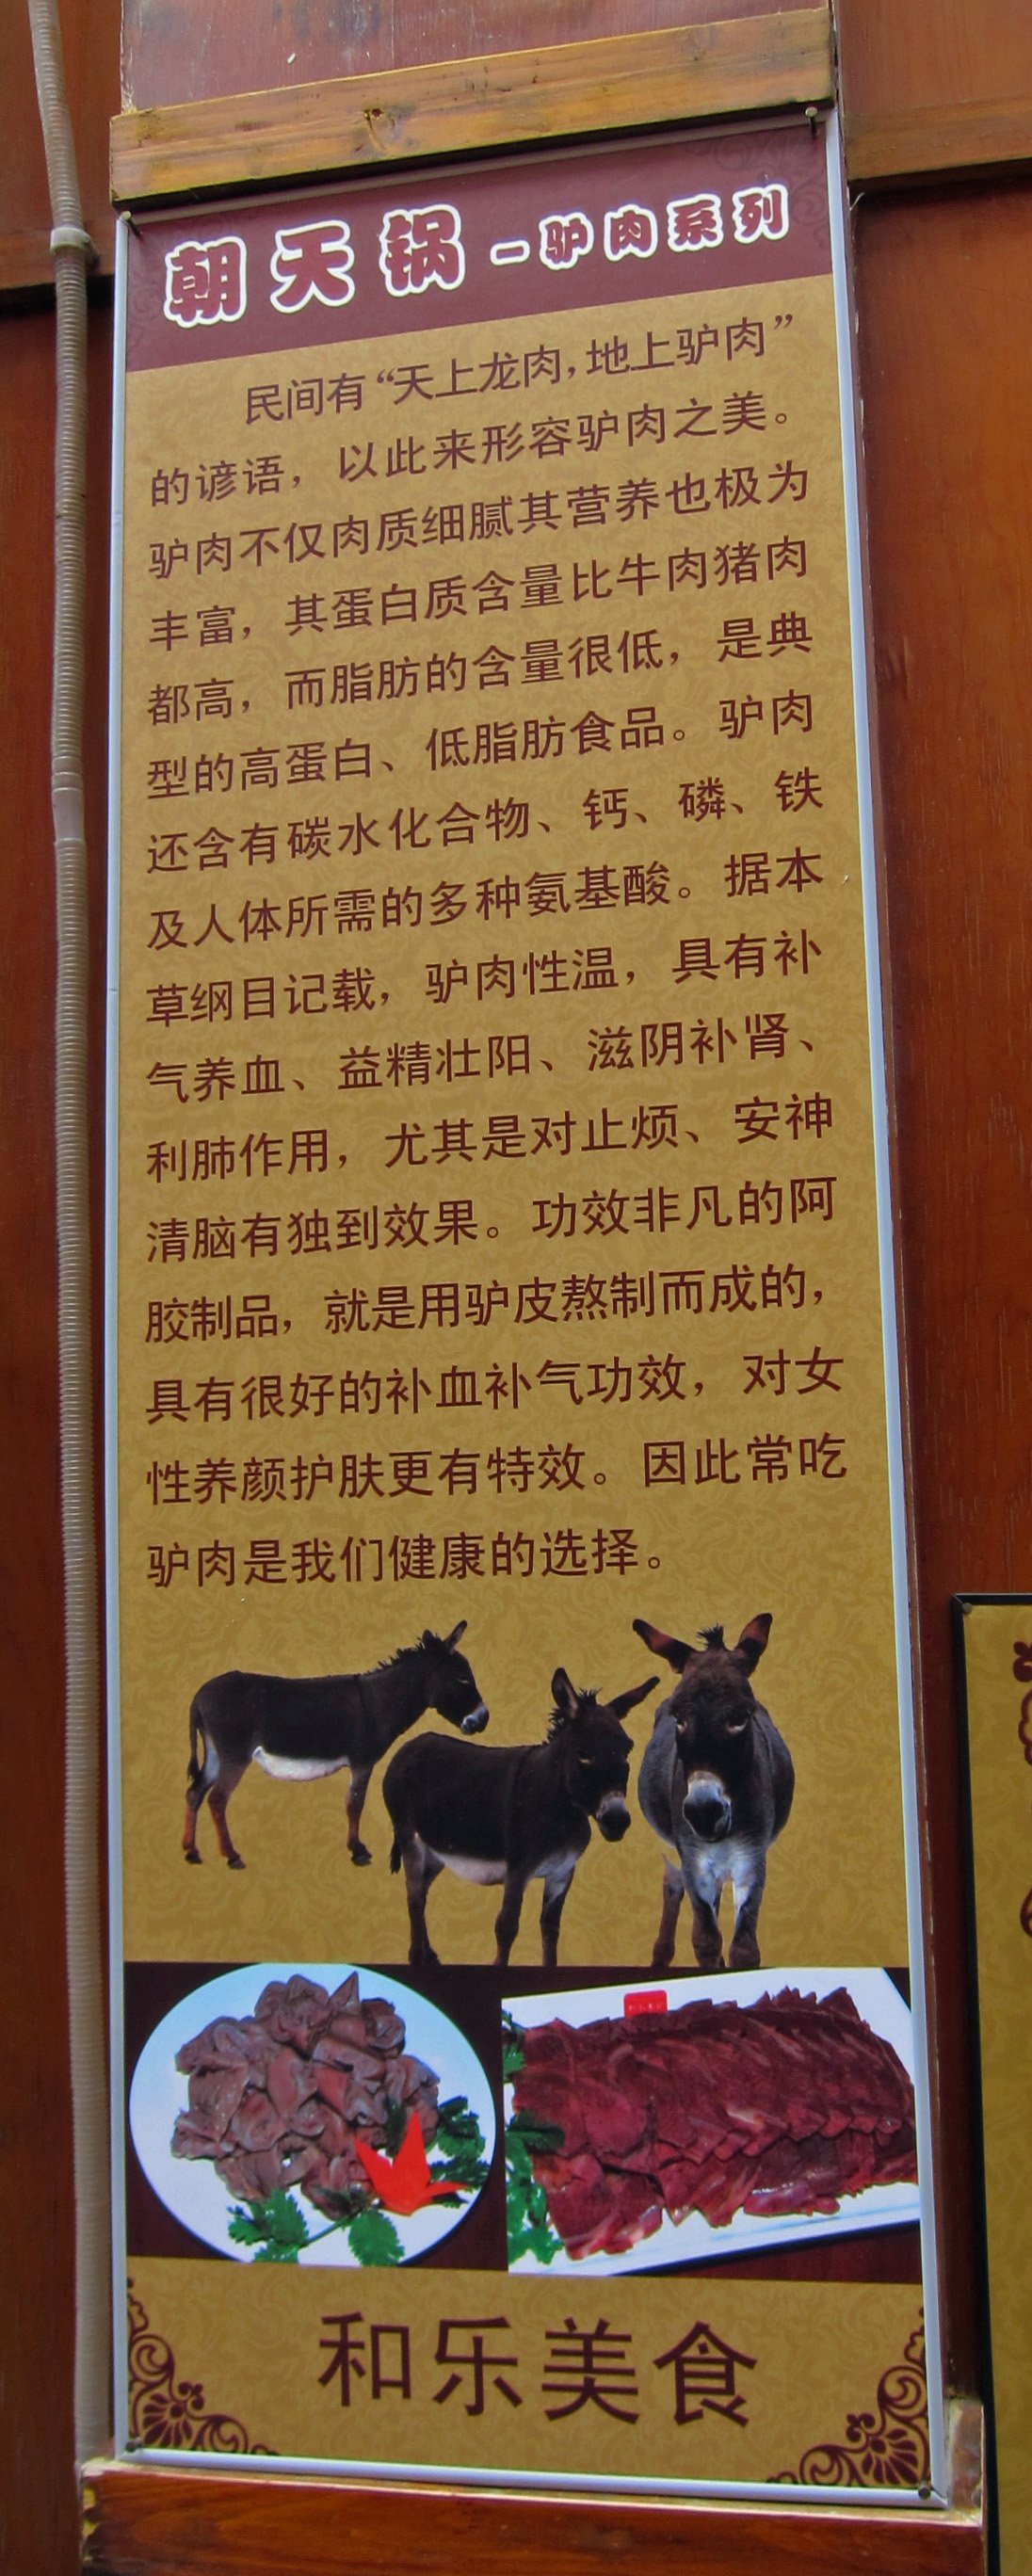 朝天锅-驴肉系列
民间有“天上龙肉,地上驴肉”
的谚语，以此来形容驴肉之美。
驴肉不仅肉质细腻其营养也极为
丰富，其蛋白质含量比牛肉猪肉
都高，而脂肪的含量很低，是典
型的高蛋白、低脂肪食品。驴肉
还含有碳水化合物、钙、磷、铁
及人体所需的多种氨基酸。据本
草纲目记载，驴肉性温，具有补
气养血、益精壮阳、滋阴补肾、
利肺作用，尤其是对止烦、安神
清脑有独到效果。功效非凡的阿
胶制品，就是用驴皮熬制而成的，
具有很好的补血补气功效，对女
性养颜护肤更有特效。因此常吃
驴肉是我们健康的选择。
和乐美食